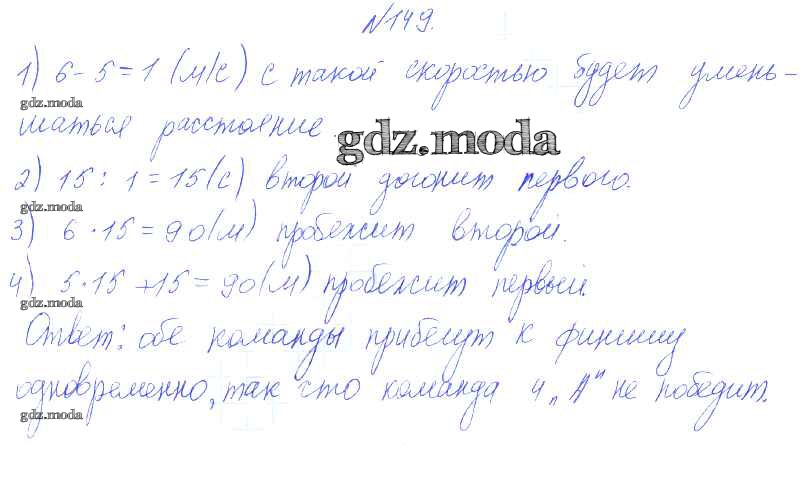 №149.
1) 6-5=1 (м/с) с такой скоростью будет умень-
gdz.moda
шаться расстояние.
gdz.moda
2) 15:1=15(с) второй догонит первого.
gdz.moda
3) 6·15=90(м) пробежит второй.
4) 5·15+15=90(м) пробежит первый.
gdz.moda
Ответ: обе команды прибегут к финишу
одновременно, так что команда 4„А" не победит.
gdz.moda